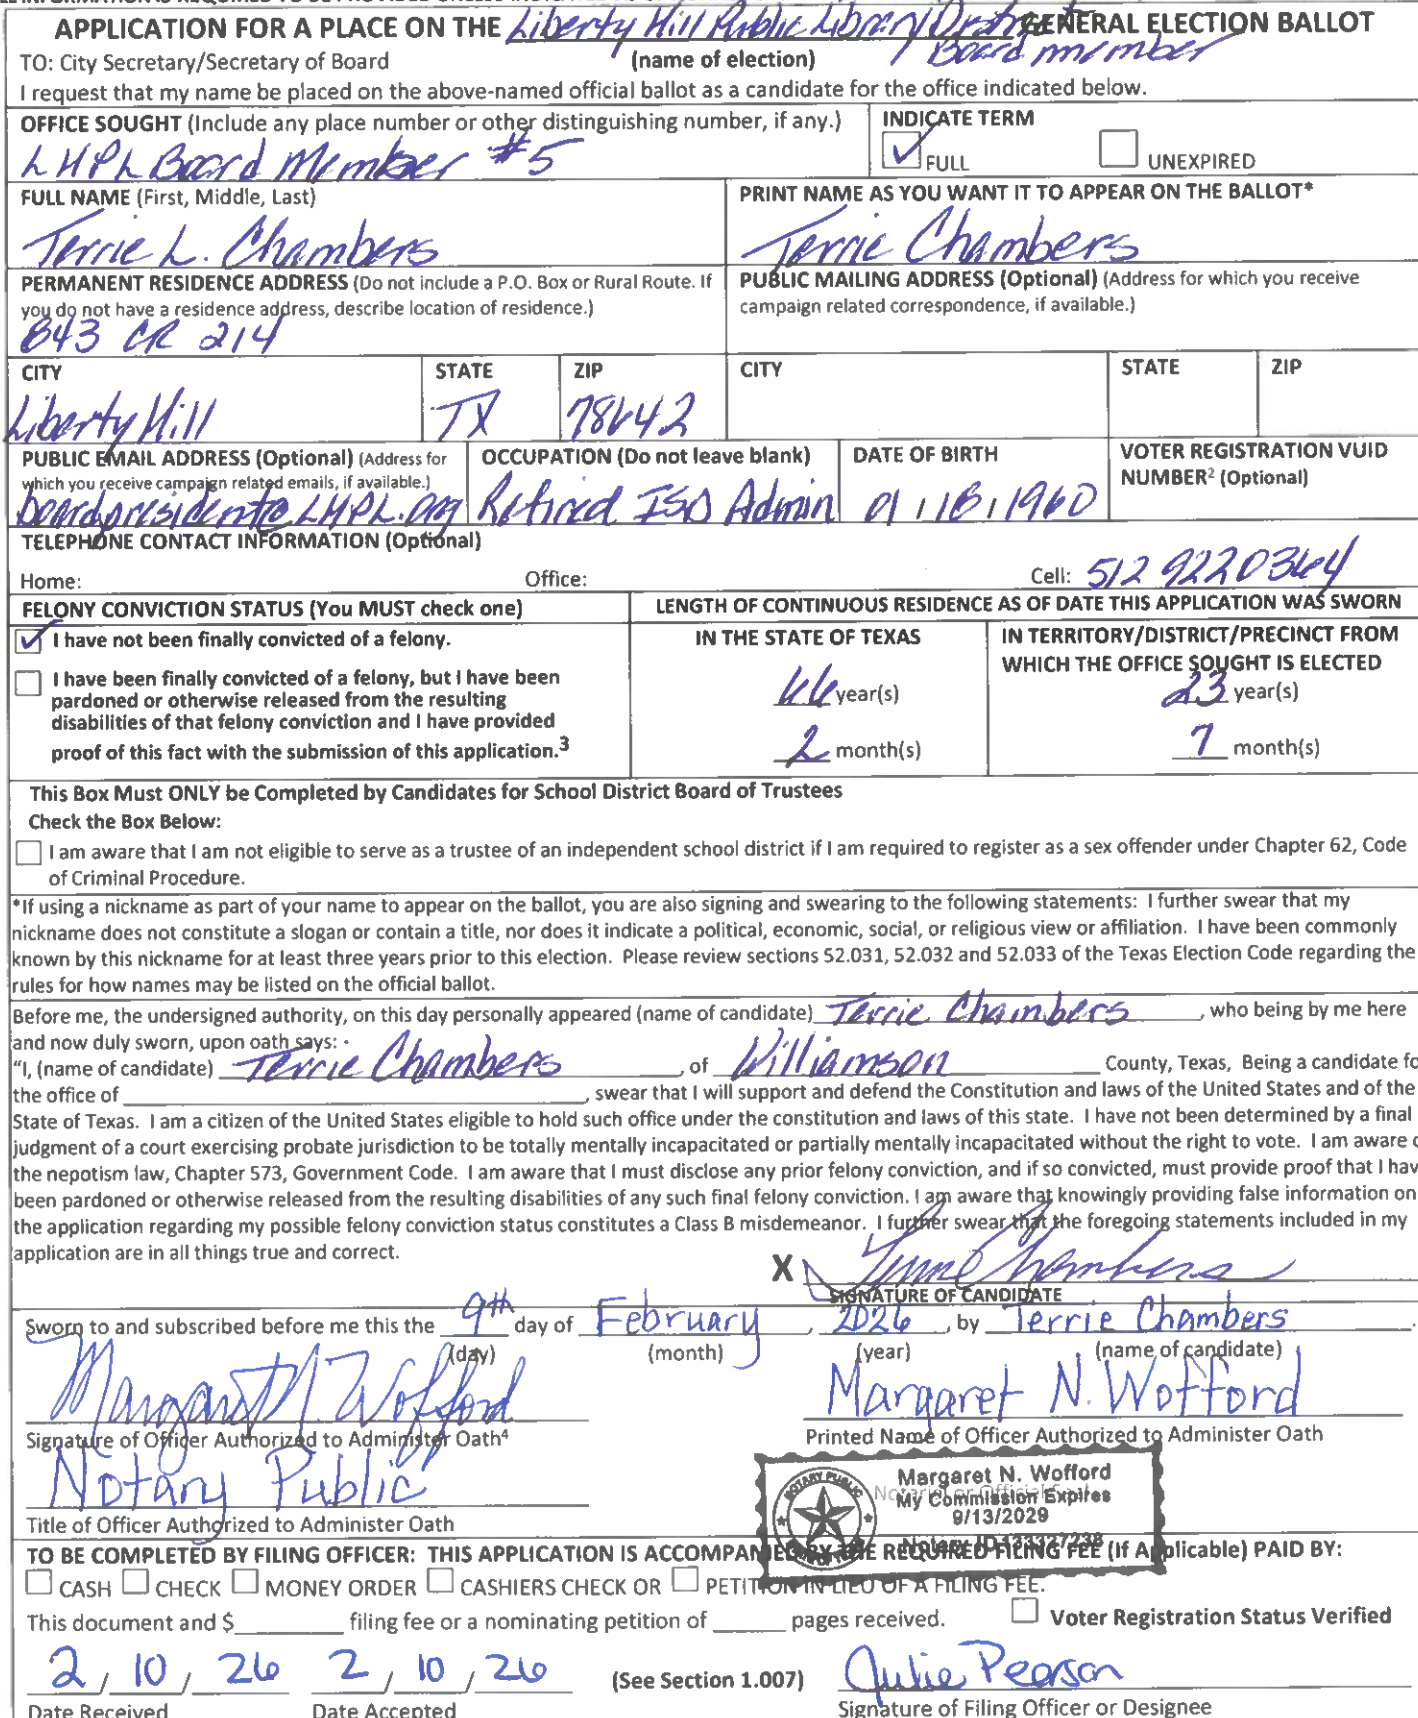 APPLICATION FOR A PLACE ON THE Liberty Hill Public Library District GENERAL ELECTION BALLOT
Board member
TO: City Secretary/Secretary of Board (name of election)
I request that my name be placed on the above-named official ballot as a candidate for the office indicated below.
OFFICE SOUGHT (Include any place number or other distinguishing number, if any.) INDICATE TERM
LHPL Board Member #5 FULL UNEXPIRED
FULL NAME (First, Middle, Last) PRINT NAME AS YOU WANT IT TO APPEAR ON THE BALLOT*
Terrie L. Chambers Terrie Chambers
PERMANENT RESIDENCE ADDRESS (Do not include a P.O. Box or Rural Route. If PUBLIC MAILING ADDRESS (Optional) (Address for which you receive
you do not have a residence address, describe location of residence.) campaign related correspondence, if available.)
843 CR 214
CITY STATE ZIP CITY STATE ZIP
Liberty Hill TX 78642
PUBLIC EMAIL ADDRESS (Optional) (Address for OCCUPATION (Do not leave blank) DATE OF BIRTH VOTER REGISTRATION VUID
which you receive campaign related emails, if available.) NUMBER² (Optional)
boardpresident@LHPL.org Retired ISD Admin 01/18/1960
TELEPHONE CONTACT INFORMATION (Optional)
Home: Office: Cell: 512 9220364
FELONY CONVICTION STATUS (You MUST check one) LENGTH OF CONTINUOUS RESIDENCE AS OF DATE THIS APPLICATION WAS SWORN
I have not been finally convicted of a felony. IN THE STATE OF TEXAS IN TERRITORY/DISTRICT/PRECINCT FROM
WHICH THE OFFICE SOUGHT IS ELECTED
I have been finally convicted of a felony, but I have been
pardoned or otherwise released from the resulting 66 year(s) 23 year(s)
disabilities of that felony conviction and I have provided
proof of this fact with the submission of this application.³ 2 month(s) 7 month(s)
This Box Must ONLY be Completed by Candidates for School District Board of Trustees
Check the Box Below:
I am aware that I am not eligible to serve as a trustee of an independent school district if I am required to register as a sex offender under Chapter 62, Code
of Criminal Procedure.
*If using a nickname as part of your name to appear on the ballot, you are also signing and swearing to the following statements: I further swear that my
nickname does not constitute a slogan or contain a title, nor does it indicate a political, economic, social, or religious view or affiliation. I have been commonly
known by this nickname for at least three years prior to this election. Please review sections 52.031, 52.032 and 52.033 of the Texas Election Code regarding the
rules for how names may be listed on the official ballot.
Before me, the undersigned authority, on this day personally appeared (name of candidate) Terrie Chambers, who being by me here
and now duly sworn, upon oath says:
"I, (name of candidate) Terrie Chambers, of Williamson County, Texas, Being a candidate fo
the office of ____, swear that I will support and defend the Constitution and laws of the United States and of the
State of Texas. I am a citizen of the United States eligible to hold such office under the constitution and laws of this state. I have not been determined by a final
judgment of a court exercising probate jurisdiction to be totally mentally incapacitated or partially mentally incapacitated without the right to vote. I am aware o
the nepotism law, Chapter 573, Government Code. I am aware that I must disclose any prior felony conviction, and if so convicted, must provide proof that I hav
been pardoned or otherwise released from the resulting disabilities of any such final felony conviction. I am aware that knowingly providing false information on
the application regarding my possible felony conviction status constitutes a Class B misdemeanor. I further swear that the foregoing statements included in my
application are in all things true and correct.
X Terrie Chambers
SIGNATURE OF CANDIDATE
Sworn to and subscribed before me this the 9th day of February, 2026, by Terrie Chambers.
(day) (month) (year) (name of candidate)
Margaret N. Wofford Margaret N. Wofford
Signature of Officer Authorized to Administer Oath⁴ Printed Name of Officer Authorized to Administer Oath
Notary Public
Title of Officer Authorized to Administer Oath
NOTARY PUBLIC
Margaret N. Wofford
My Commission Expires
9/13/2029
Notary ID 133327238
TO BE COMPLETED BY FILING OFFICER: THIS APPLICATION IS ACCOMPANIED BY THE REQUIRED FILING FEE (If Applicable) PAID BY:
CASH CHECK MONEY ORDER CASHIERS CHECK OR PETITION IN LIEU OF A FILING FEE.
This document and $____ filing fee or a nominating petition of ____ pages received. Voter Registration Status Verified
2/10/26 2/10/26 (See Section 1.007) Julie Pearson
Date Received Date Accepted Signature of Filing Officer or Designee